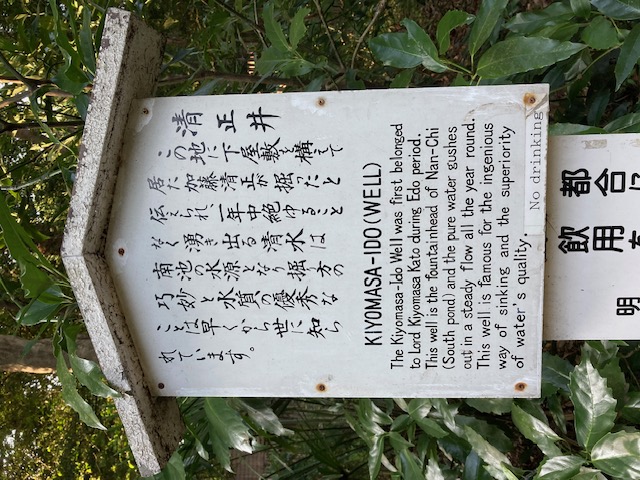 清正井
この地に下屋敷を構えて
居た加藤清正が掘ったと
伝えられ、一年中絶ゆること
なく湧き出る清水は
南池の水源となり掘方の
巧妙と水質の優秀な
ことは早くから世に知ら
れています。
KIYOMASA-IDO (WELL)
The Kiyomasa-Ido Well was first belonged
to Lord Kiyomasa Kato during Edo period.
This well is the fountainhead of Nan-Chi
(South pond) and the pure water gushes
out in a steady flow all the year round.
This well is famous for the ingenious
way of sinking and the superiority
of water's quality.
No drinking
都合に
飲用を
明